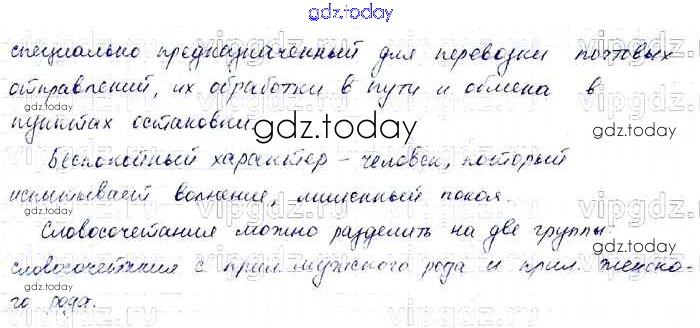 gdz.today
специально предназначенный для перевозки почтовых
отправлений, их обработки в пути и обмена в
пунктах остановки.
Беспокойный характер - человек, который
испытывает волнение, лишенный покоя.
Словосочетания можно разделить на две группы
словосочетания с прил. мужского рода и прил. женско-
го рода.